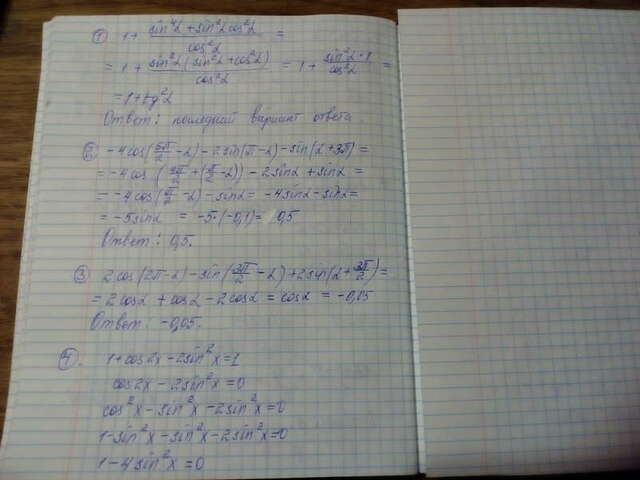 ① 1 + (sin⁴α + sin²α cos²α)/cos²α =
= 1 + sin²α (sin²α + cos²α)/cos²α = 1 + sin²α · 1/cos²α =
= 1 + tg²α
Ответ: последний вариант ответа
-4cos(5π/2 - α) - 2sin(π - α) - sin(α + 3π) =
= -4cos(2π + (π/2 - α)) - 2sinα + sinα =
= -4cos(π/2 - α) - sinα = -4sinα - sinα =
= -5sinα = -5·(-0,1) = 0,5
Ответ: 0,5.
③ 2cos(2π - α) - sin(3π/2 - α) + 2sin(α + 3π/2) =
= 2cosα + cosα - 2cosα = cosα = -0,05
Ответ: -0,05.
1 + cos2x - 2sin²x = 1
cos2x - 2sin²x = 0
cos²x - sin²x - 2sin²x = 0
1 - sin²x - sin²x - 2sin²x = 0
1 - 4sin²x = 0